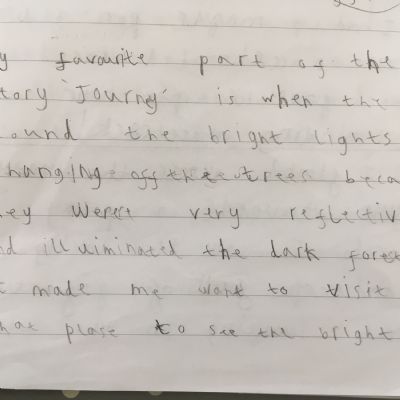 y favourite part of the
tory 'Journey' is when the
ound the bright lights
hanging off the trees beca
ey were very reflectiv
nd illuiminated the dark forest
t made me want to visit
hat place to see the bright